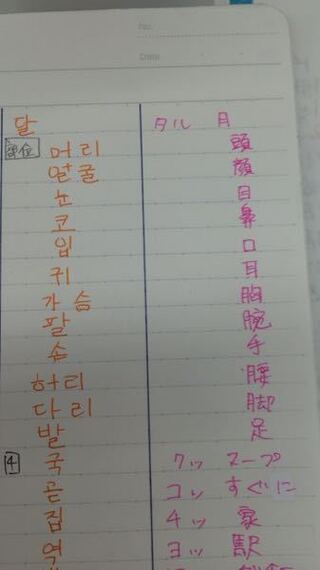 No.
Date
달 タル 月
部位 머리 頭
얼굴 顔
눈 目
코 鼻
입 口
귀 耳
가슴 胸
팔 腕
손 手
허리 腰
다리 脚
발 足
4 국 クッ スープ
곧 コッ すぐに
집 チッ 家
역 ヨッ 駅